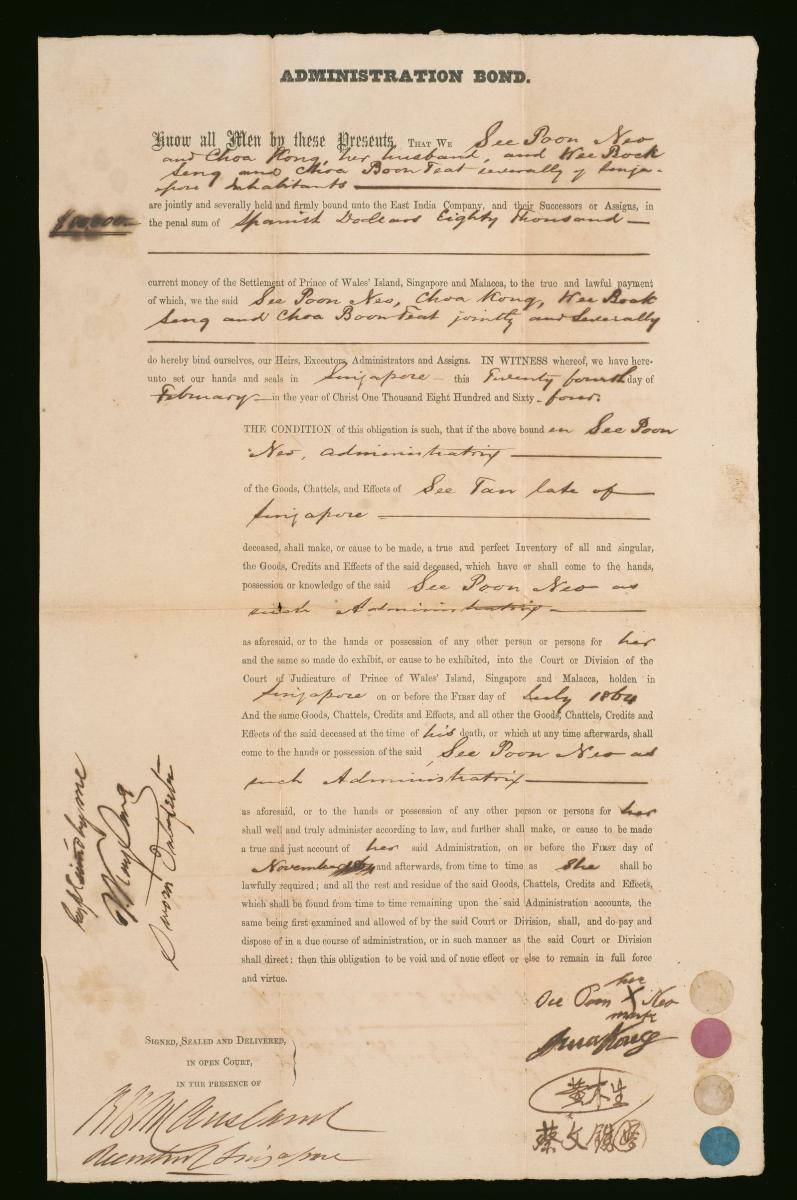 ADMINISTRATION BOND.
Know all Men by these Presents, THAT WE See Poon Neo
and Choa Kong, her husband, and Wee Bock
Seng and Choa Boon Teat severally of Singa-
pore Inhabitants
are jointly and severally held and firmly bound unto the East India Company, and their Successors or Assigns, in
the penal sum of Spanish Dollars Eighty thousand
current money of the Settlement of Prince of Wales' Island, Singapore and Malacca, to the true and lawful payment
of which, we the said See Poon Neo, Choa Kong, Wee Bock
Seng and Choa Boon Teat jointly and Severally
do hereby bind ourselves, our Heirs, Executors, Administrators and Assigns. IN WITNESS whereof, we have here-
unto set our hands and seals in Singapore this Twenty fourth day of
February in the year of Christ One Thousand Eight Hundred and Sixty-four.
THE CONDITION of this obligation is such, that if the above bounden See Poon
Neo, administratrix
of the Goods, Chattels, and Effects of See Tan late of
Singapore
deceased, shall make, or cause to be made, a true and perfect Inventory of all and singular,
the Goods, Credits and Effects of the said deceased, which have or shall come to the hands,
possession or knowledge of the said See Poon Neo as
such Administratrix
as aforesaid, or to the hands or possession of any other person or persons for her
and the same so made do exhibit, or cause to be exhibited, into the Court or Division of the
Court of Judicature of Prince of Wales' Island, Singapore and Malacca, holden in
Singapore on or before the FIRST day of July 1864
And the same Goods, Chattels, Credits and Effects, and all other the Goods, Chattels, Credits and
Effects of the said deceased at the time of his death, or which at any time afterwards, shall
come to the hands or possession of the said See Poon Neo as
such Administratrix
as aforesaid, or to the hands or possession of any other person or persons for her
shall well and truly administer according to law, and further shall make, or cause to be made
a true and just account of her said Administration, on or before the FIRST day of
November and afterwards, from time to time as She shall be
lawfully required; and all the rest and residue of the said Goods, Chattels, Credits and Effects,
which shall be found from time to time remaining upon the said Administration accounts, the
same being first examined and allowed of by the said Court or Division, shall, and do pay and
dispose of in a due course of administration, or in such manner as the said Court or Division
shall direct: then this obligation to be void and of none effect or else to remain in full force
and virtue.
Explained by me
Sworn Interpreter
her
Poon X Neo
mark
Choa Kong
黃木生
蔡文
SIGNED, SEALED AND DELIVERED,
IN OPEN COURT,
IN THE PRESENCE OF
Singapore